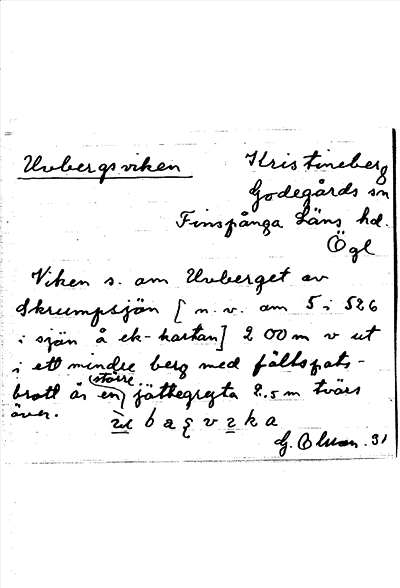 Uvbergsviken
Kristineberg
Godegårds sn
Finspånga Läns hd.
Ögl
Viken s. om Uvberget av
Skrumpsjön [n. v. om 5 i 526
i sjön å ek-kartan] 200 m v ut
i ett mindre berg med fältspats-
brott är en större jättegryta 2,5 m tvärs
över.
G. Olsson. 31